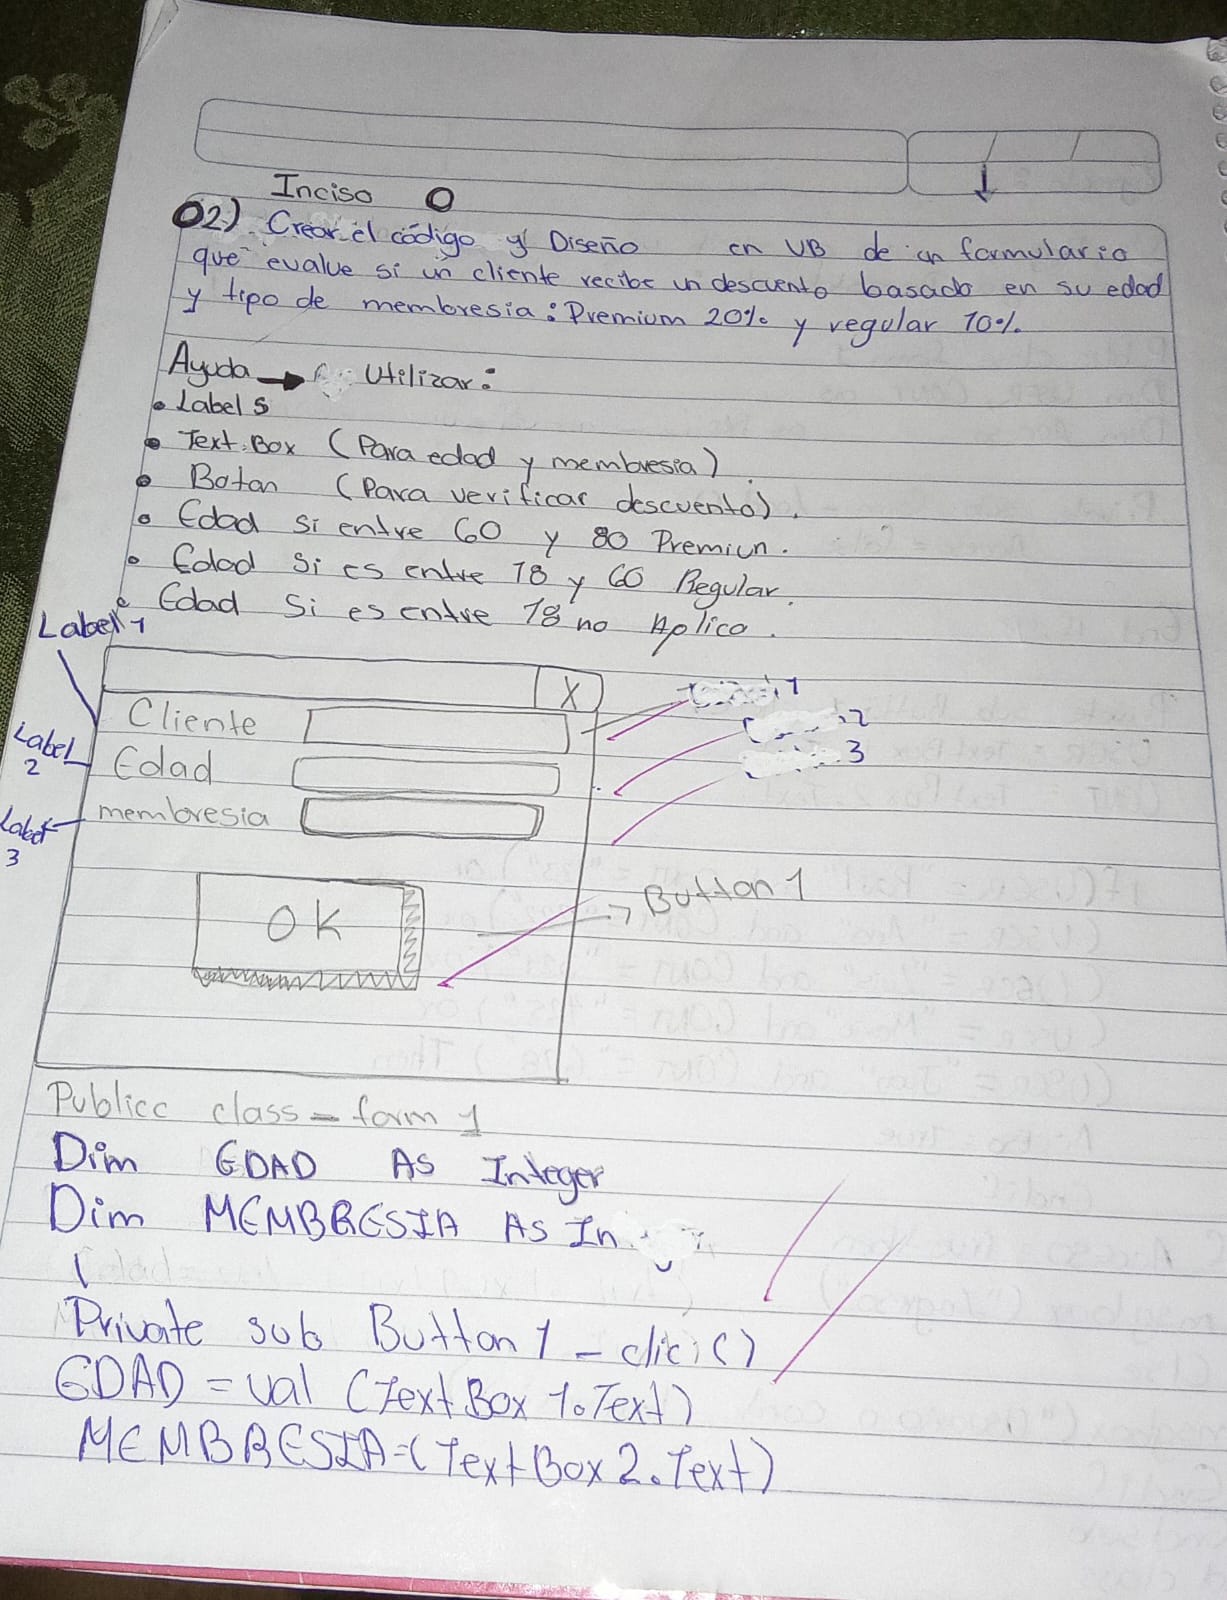 Inciso O
O2.) Crear el código y Diseño en VB de un formulario
que evalue si un cliente recibe un descuento basado en su edad
y tipo de membresia: Premium 20% y regular 10%.
Ayuda → Utilizar:
• Labels
• Text.Box (Para edad y membresia).
• Boton (Para verificar descuento).
• Edad si entre 60 y 80 Premiun.
• Edad Si es entre 18 y 60 Regular.
• Edad Si es entre 18 no Aplica.
Label 1
X
1
Cliente
2
Label 2
Edad
3
Label 3
membresia
Button 1
OK
Publicc class = form 1
Dim EDAD As Integer
Dim MEMBRESIA As In
Private sub Button 1 - clic()
EDAD = val (Text Box 1.Text)
MEMBRESIA = (Text Box 2.Text)